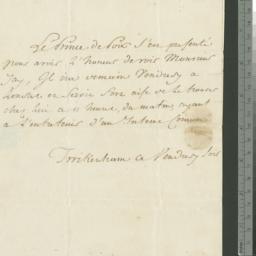 Le Prince de Poix S'en presenté
pour avoir l'honeur de voir Monsieur
Jay, Il ira demain Vendredy a
Londre et Seroit bien aise de le trouver
chez lui a 11 heure du matin ayant
a l'entretenir d'un
Twickenham ce Vendredy Soir